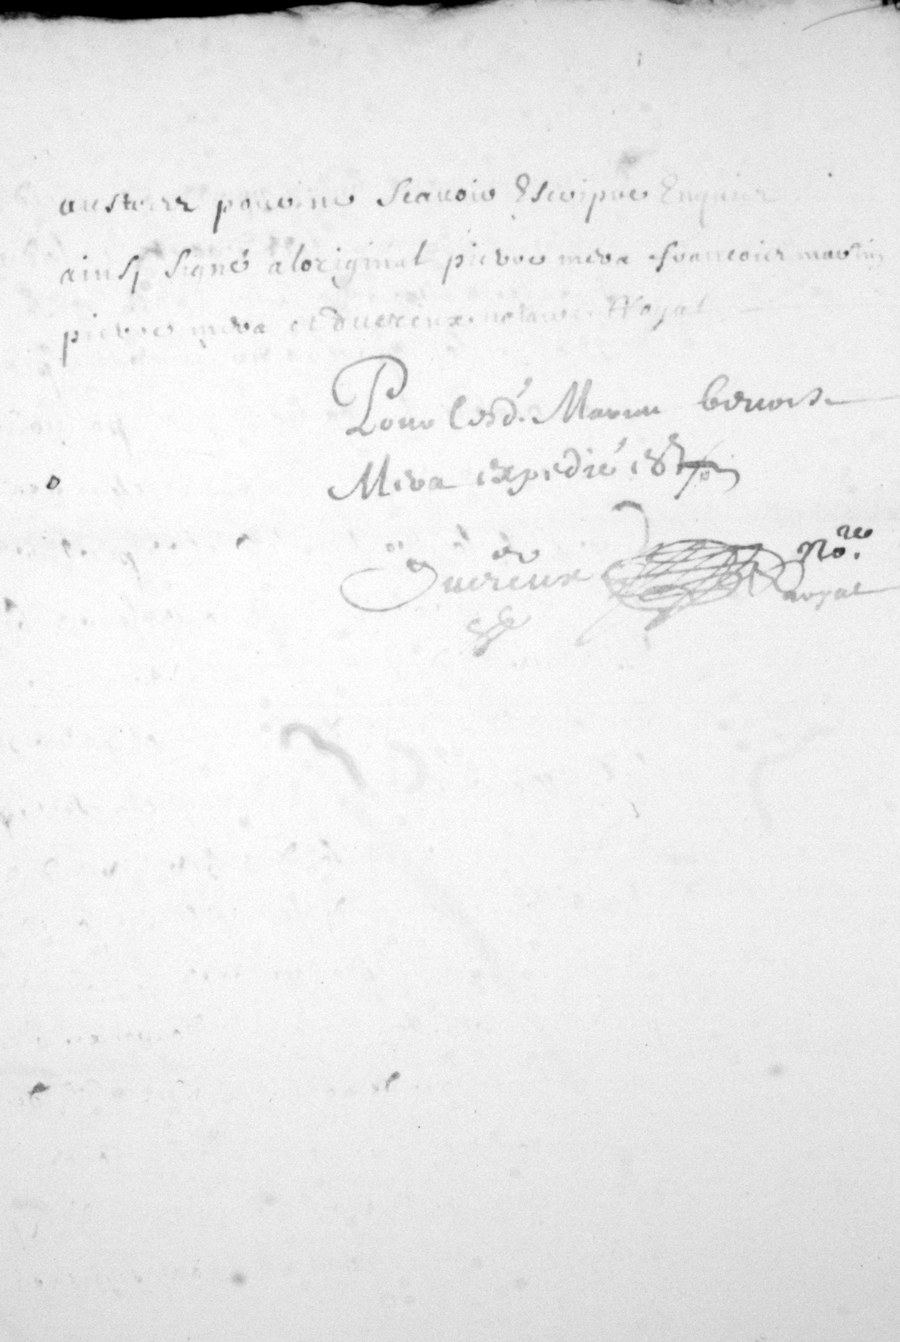 austres pour ne scavoir Escripre Enquis
ainsy signé a loriginal pierre mera francois martin
pierre mera et duereux notaire Royal
Pour lesd. Marion benoist
Mera expedié est
Duereux no.re
Royal